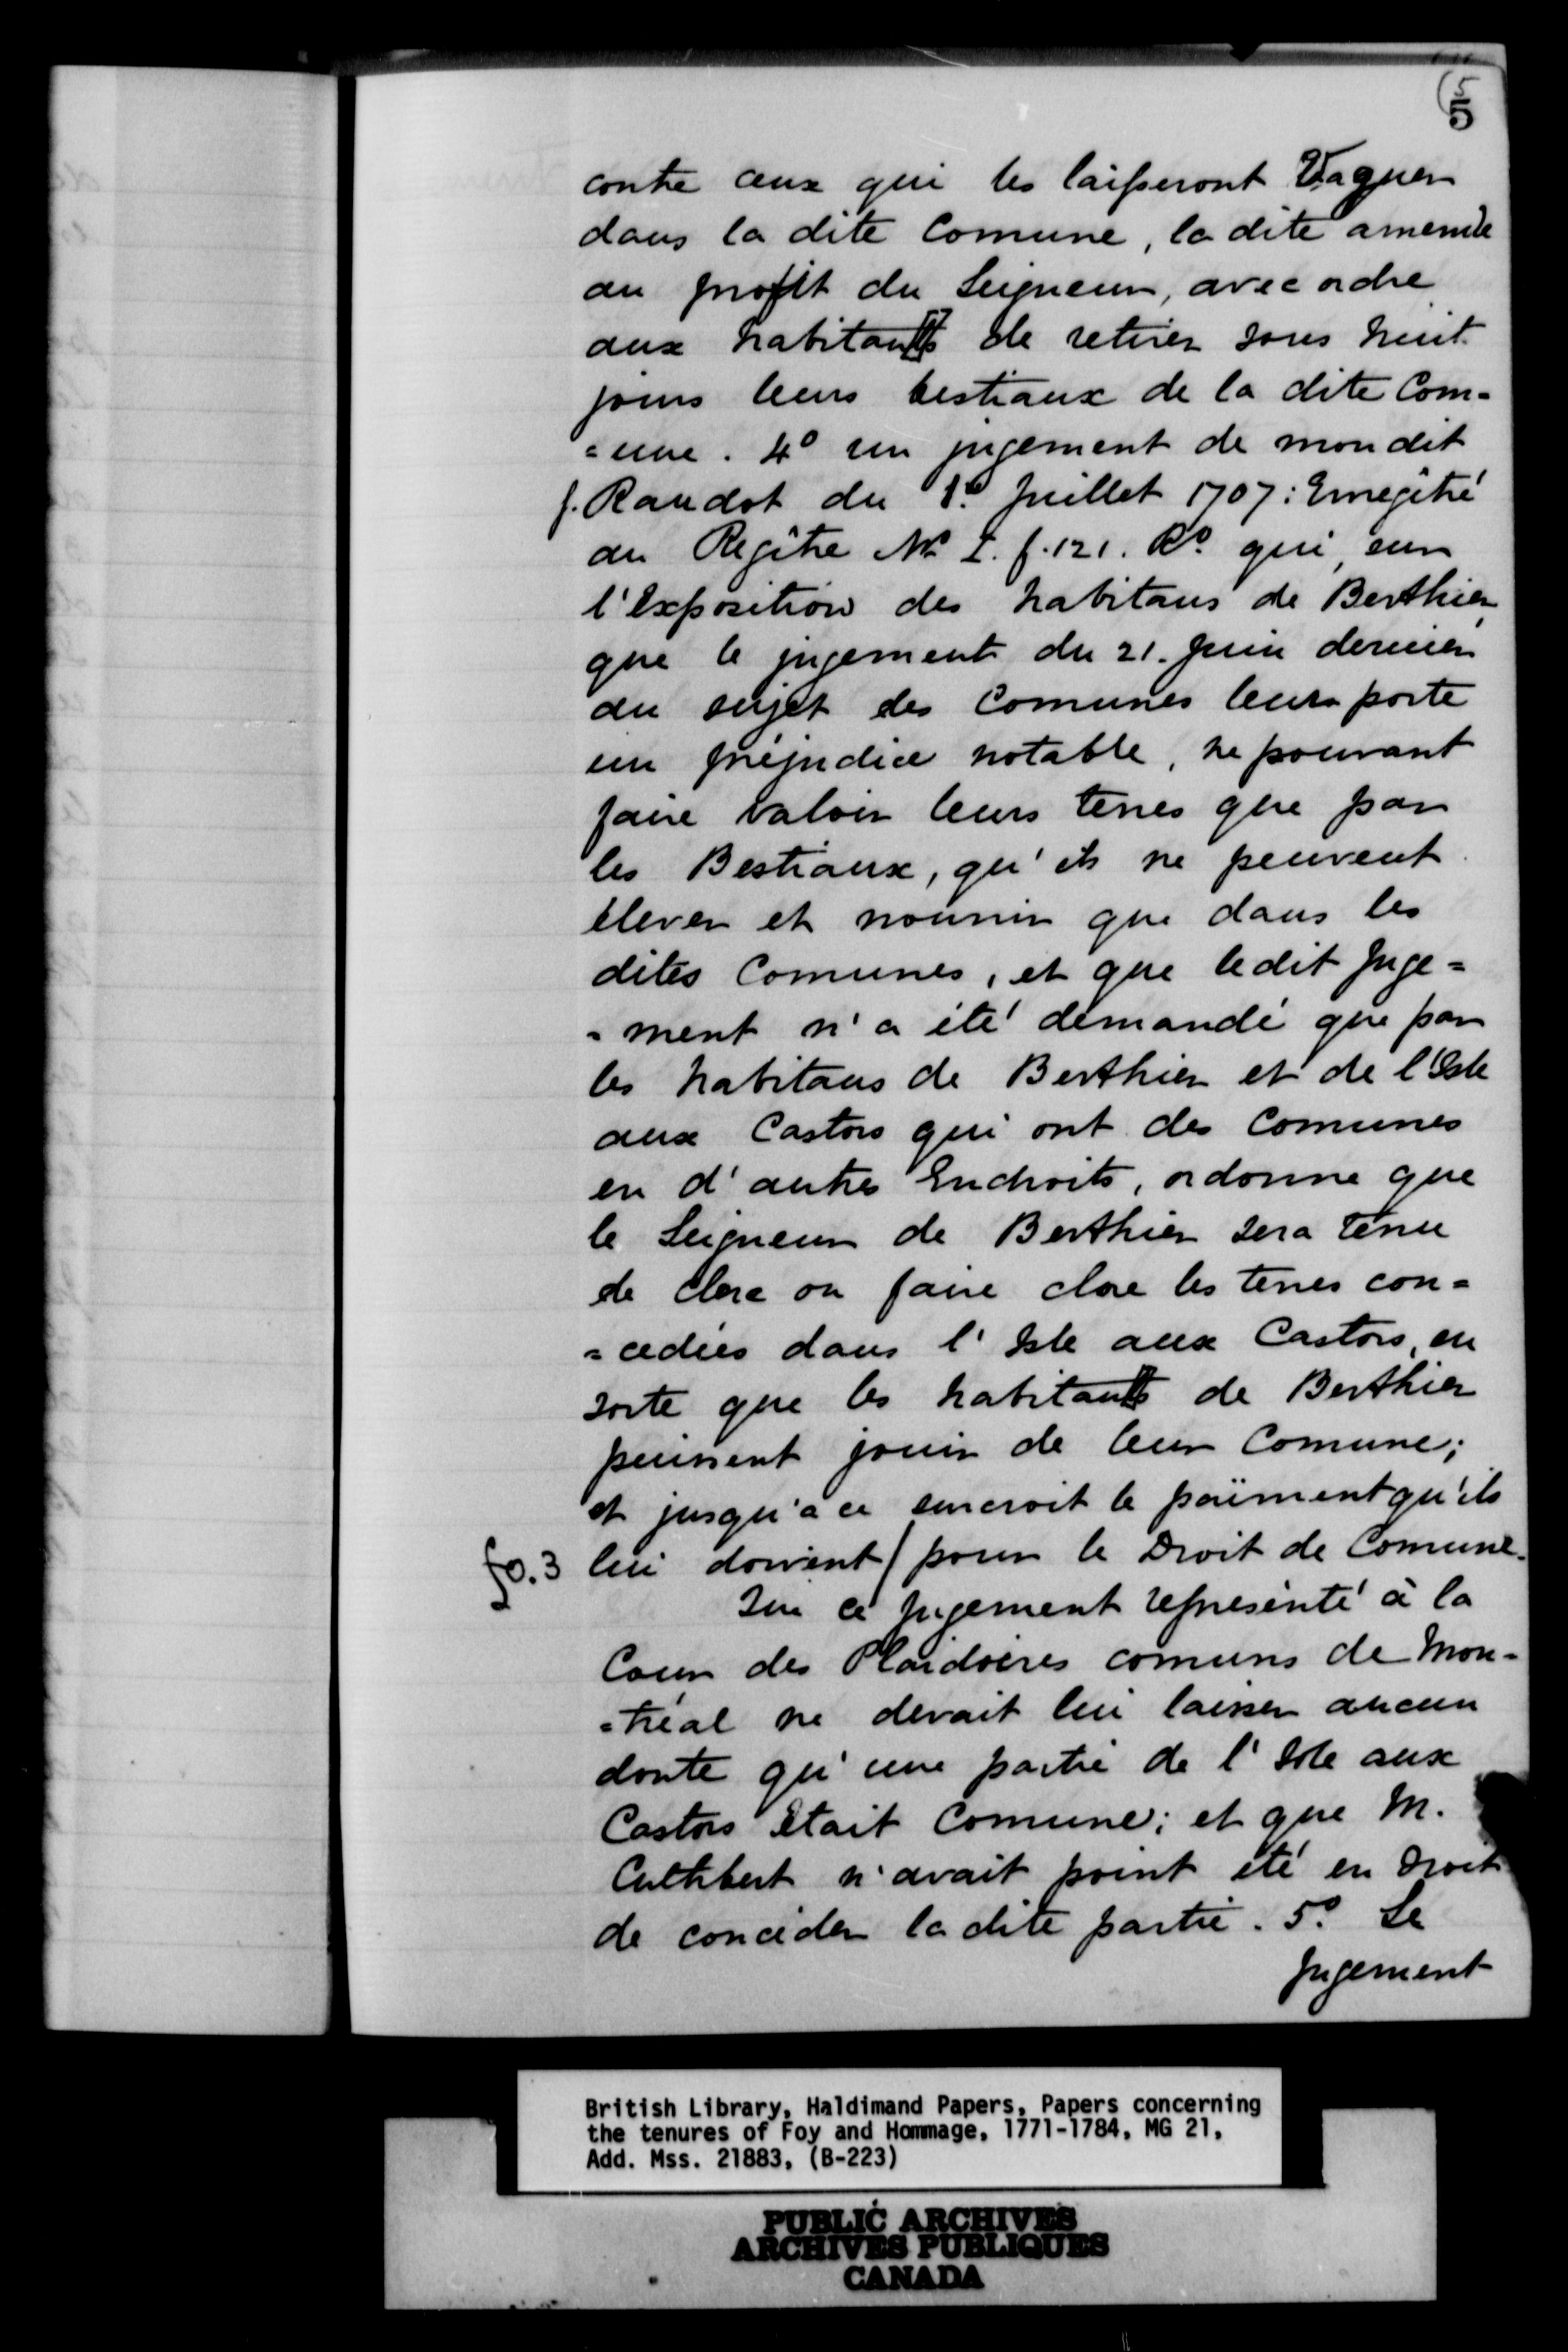 5
5
contre ceux qui les laisseront Vaguer
dans la dite Comune, la dite amende
au profit du Seigneur, avec ordre
aux habitants de retirer sous huit
jours leurs bestiaux de la dite Com-
=une. 4º un jugement de mondit
f. Raudot du 1º Juillet 1707: Enregitré
au Regître Nº f. 121. Rº qui, sur
l'Exposition des habitans de Berthier,
que le jugement du 21. Juin dernier
au sujet des Comunes leur porte
un préjudice notable, ne pouvant
faire valoir leurs terres que par
les Bestiaux, qu'ils ne peuvent
élever et nourrir que dans les
dites Comunes, et que ledit Juge=
=ment n'a été demandé que par
les habitans de Berthier et de l'Isle
aux Castors qui ont des Comunes
en d'autres Endroits, ordonne que
le Seigneur de Berthier sera tenu
de clore ou faire clore les terres con=
=cedées dans l'Isle aux Castors, en
sorte que les habitants de Berthier
puissent jouir de leur Comune;
et jusqu'à ce surcroit le païment qu'ils
fo. 3 lui doivent / pour le Droit de Comune.
Sur ce jugement représenté à la
Cour des Plaidoieres comuns de Mon-
=tréal ne devait lui laisser aucun
doute qu'une partie de l'Isle aux
Castors était Comune; et que M.
Cuthbert n'avait point été en Droit
de concéder la dite partie. 5º. Le
Jugement
British Library, Haldimand Papers, Papers concerning
the tenures of Foy and Hommage, 1771-1784, MG 21,
Add. Mss. 21883, (B-223)
PUBLIC ARCHIVES
ARCHIVES PUBLIQUES
CANADA